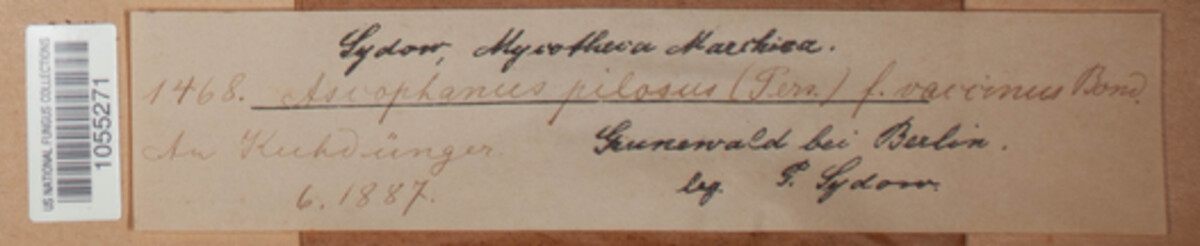 US NATIONAL FUNGUS COLLECTIONS
1055271
Sydow, Mycotheca Marchica.
1468. Ascophanus pilosus (Fers.) f. vaccinus Boud.
An Kuhdünger
6. 1887.
Grunewald bei Berlin.
leg. P. Sydow.